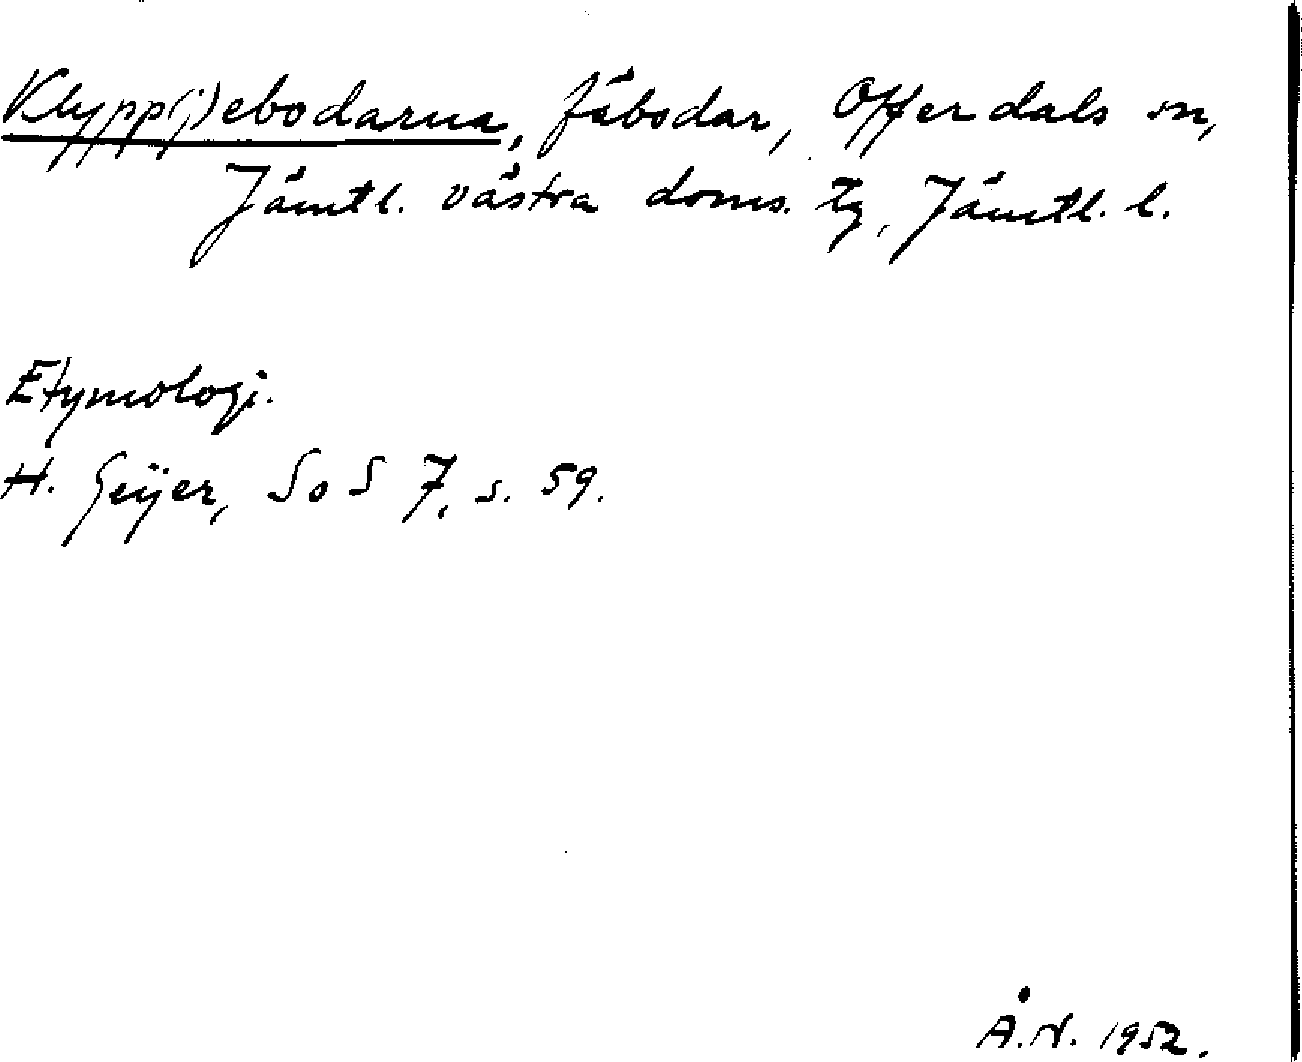 Klypp(j)ebodarna, fäbodar, Offerdals sn,
Jämtl. västra doms. tg, Jämtl. l.
Etymologi.
H. Geijer, SoS 7, s. 59.
Å.N. 1952.